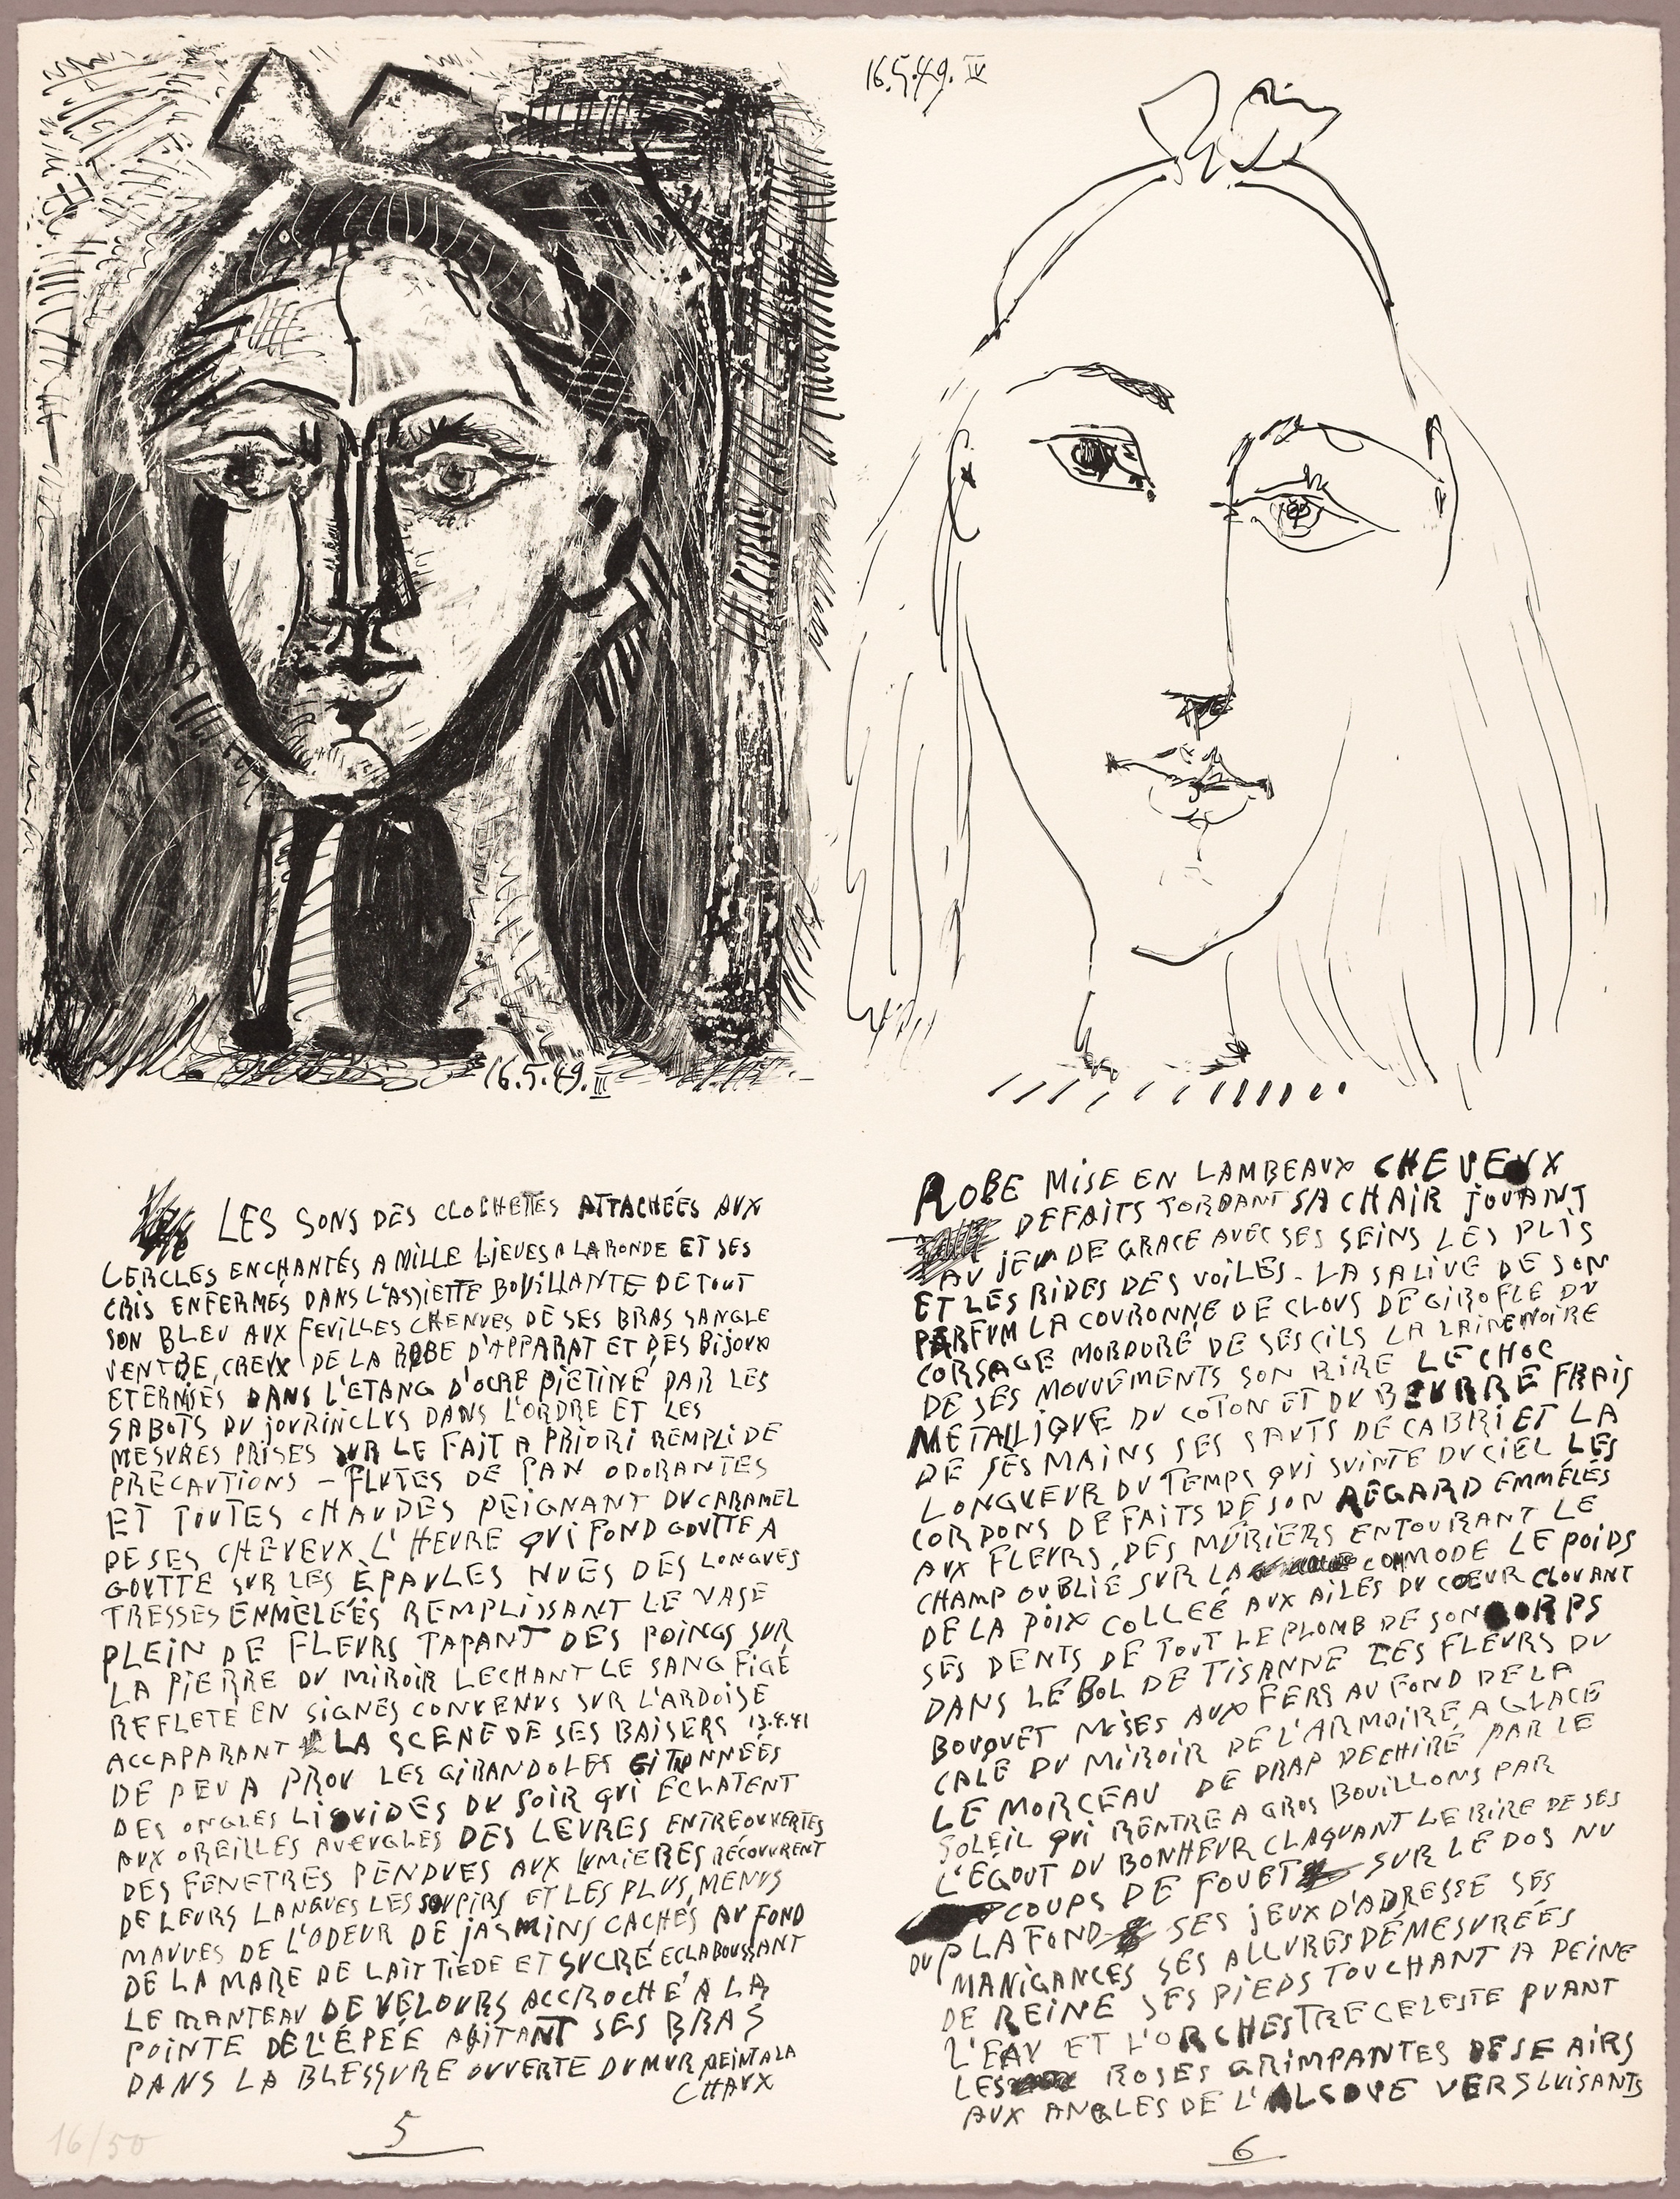 16.5.49. III
LES SONS DES CLOCHETTES ATTACHÉES AUX
CERCLES ENCHANTÉS A MILLE LIEUES A LA RONDE ET SES
CRIS ENFERMÉS DANS L'ASSIETTE BOUILLANTE DE TOUT
SON BLEU AUX FEUILLES CHENUES DE SES BRAS SANGLE
VENTRE CREUX DE LA ROBE D'APPARAT ET DES BIJOUX
ETERNISÉS DANS L'ETANG D'OCRE PIETINÉ PAR LES
SABOTS DU JOUR INCLUS DANS L'ORDRE ET LES
MESURES PRISES SUR LE FAIT A PRIORI REMPLI DE
PRECAUTIONS – FLUTES DE PAN ODORANTES
ET TOUTES CHAUDES PEIGNANT DU CARAMEL
DE SES CHEVEUX L'HEURE QUI FOND GOUTTE A
GOUTTE SUR LES ÉPAULES NUES DES LONGUES
TRESSES ENMÈLEÉS REMPLISSANT LE VASE
PLEIN DE FLEURS TAPANT DES POINGS SUR
LA PIERRE DU MIROIR LECHANT LE SANG FIGÉ
REFLETÉ EN SIGNES CONVENUS SUR L'ARDOISE
ACCAPARANT LA SCENE DE SES BAISERS 13.4.41
DE PEU A PROU LES GIRANDOLES
DES ONGLES LIQUIDES DU SOIR QUI ÉCLATENT
AUX OREILLES AVEUGLES DES LEVRES ENTREOUVERTES
DES FENETRES PENDUES AUX LUMIERES RÉCOUVRENT
DE LEURS LANGUES LES SOUPIRS ET LES PLUS MENUS
MAUVES DE L'ODEUR DE JASMINS CACHÉS AU FOND
DE LA MARE DE LAIT TIÈDE ET SUCRÉ ECLABOUSSANT
LE MANTEAU DE VELOURS ACCROCHÉ A LA
POINTE DE L'ÉPÉE AGITANT SES BRAS
DANS LA BLESSURE OUVERTE DU MUR PEINT A LA
CHAUX
5
16/50
16.5.49. IV
ROBE MISE EN LAMBEAUX CHEVEUX
DEFAITS TORDANT SA CHAIR JOUANT
AU JEU DE GRACE AVEC SES SEINS LES PLIS
ET LES RIDES DES VOILES – LA SALIVE DE SON
PARFUM LA COURONNE DE CLOUS DE GIROFLE DU
CORSAGE MORDORÉ DE SES CILS LA LAINE NOIRE
DE SES MOUVEMENTS SON RIRE LE CHOC
METALLIQUE DU COTON ET DU BEURRE FRAIS
DE SES MAINS SES SAUTS DE CABRI ET LA
LONGUEUR DU TEMPS QUI SUINTE DU CIEL LES
CORDONS DEFAITS DE SON REGARD EMMÉLÉS
AUX FLEURS DES MÛRIERS ENTOURANT LE
CHAMP OUBLIÉ SUR LA COMMODE LE POIDS
DE LA POIX COLLEÉ AUX AILES DU COEUR CLOUANT
SES DENTS DE TOUT LE PLOMB DE SON CORPS
DANS LE BOL DE TISANNE LES FLEURS DU
BOUQUET MISES AUX FERS AU FOND DE LA
CALE DU MIROIR DE L'ARMOIRE A GLACE
LE MORCEAU DE DRAP DECHIRÉ PAR LE
SOLEIL QUI RENTRE A GROS BOUILLONS PAR
L'ÉGOUT DU BONHEUR CLAQUANT LE RIRE DE SES
COUPS DE FOUET SUR LE DOS NU
DU PLAFOND SES JEUX D'ADRESSE SES
MANIGANCES SES ALLURES DÉMESURÉES
DE REINE SES PIEDS TOUCHANT A PEINE
L'EAU ET L'ORCHESTRE CELESTE PUANT
LES ROSES GRIMPANTES DE SE AIRS
AUX ANGLES DE L'ALCOVE VERS LUISANTS
6